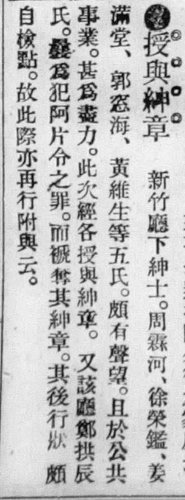 授與紳章　新竹廳下紳士。周霖河、徐榮鑑、姜
滿堂、郭窓海、黃維生等五氏。頗有聲望。且於公共
事業。甚爲盡力。此次經各授與紳章。又該廳鄭拱辰
氏。曩爲犯阿片令之罪。而褫奪其紳章。其後行狀頗
自檢點。故此際亦再行附與云。